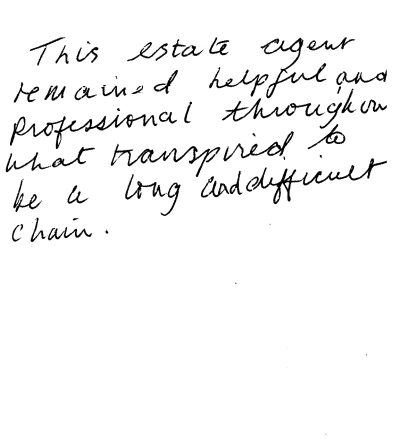 This estate agent
remained helpful and
professional throughou
what transpired to
be a long and difficult
chain.